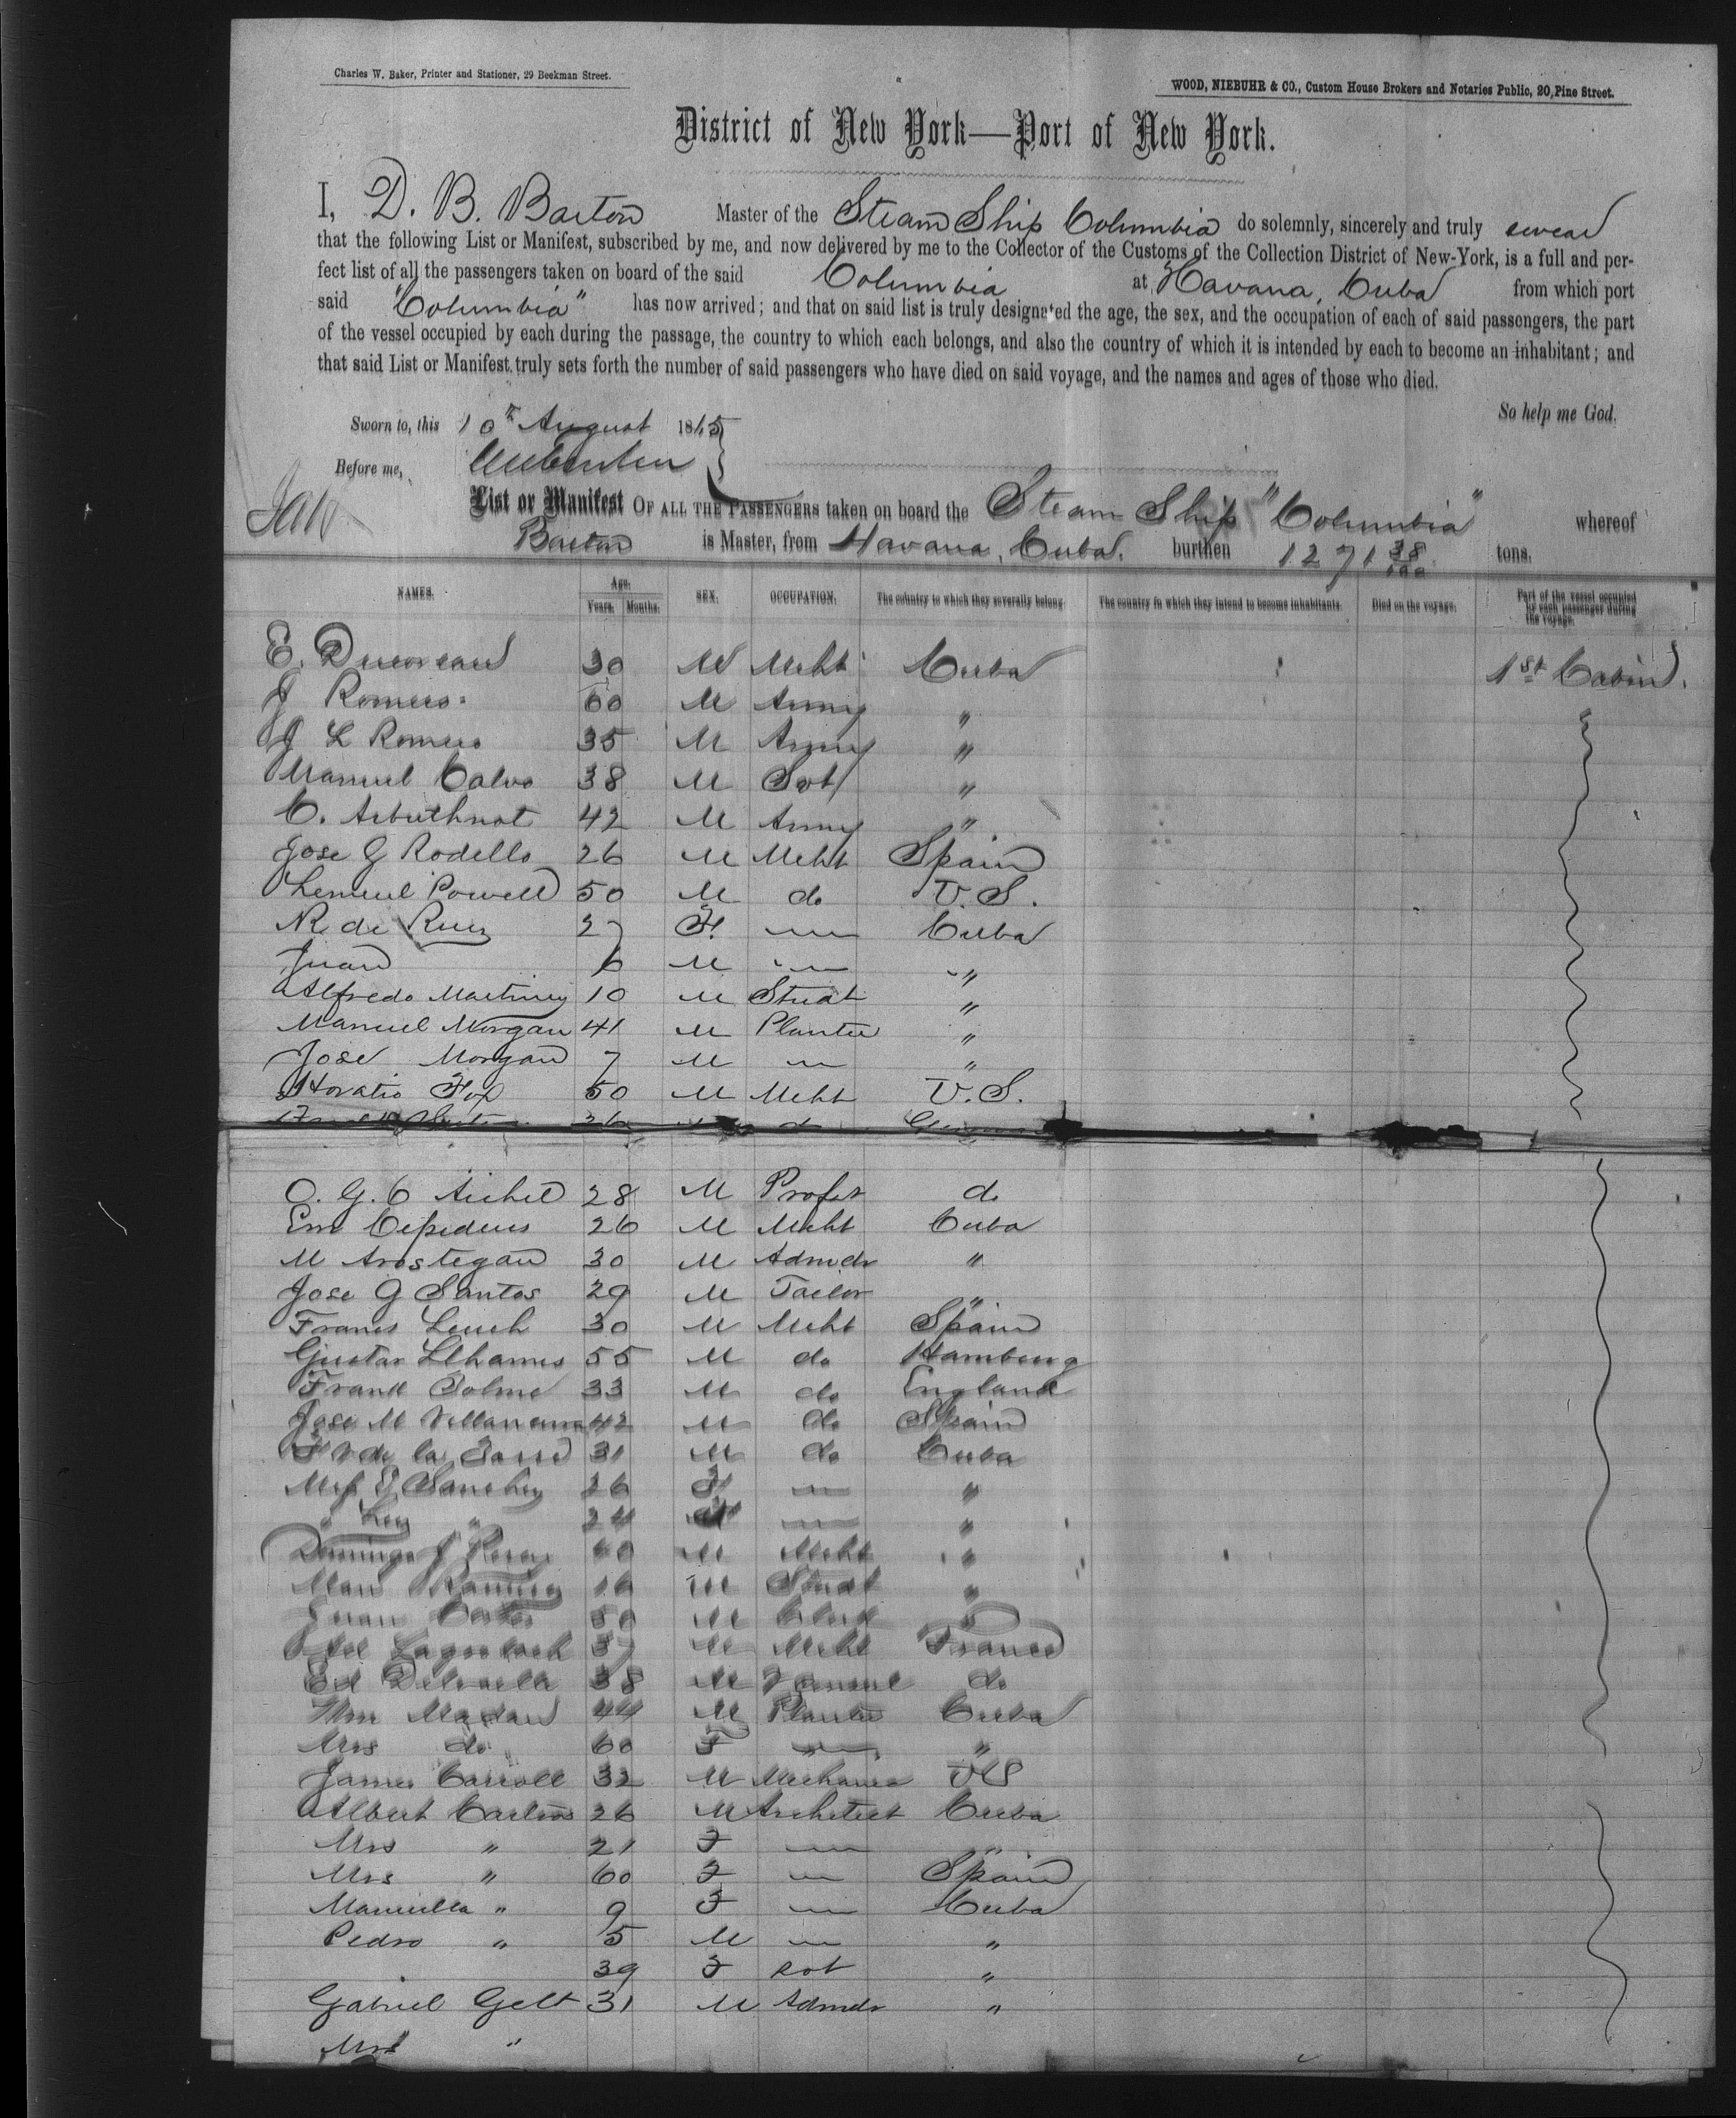 Charles W. Baker, Printer and Stationer, 29 Beekman Street.
WOOD, NIEBUHR & CO., Custom House Brokers and Notaries Public, 20, Pine Street.
District of New York—Port of New York.
I, D. B. Barton Master of the Steam Ship Columbia do solemnly, sincerely and truly swear
that the following List or Manifest, subscribed by me, and now delivered by me to the Collector of the Customs of the Collection District of New-York, is a full and per-
fect list of all the passengers taken on board of the said Columbia at Havana, Cuba from which port
said "Columbia" has now arrived; and that on said list is truly designated the age, the sex, and the occupation of each of said passengers, the part
of the vessel occupied by each during the passage, the country to which each belongs, and also the country of which it is intended by each to become an inhabitant; and
that said List or Manifest truly sets forth the number of said passengers who have died on said voyage, and the names and ages of those who died.
So help me God.
Sworn to, this 10th August 1865
Before me,
List or Manifest OF ALL THE PASSENGERS taken on board the Steam Ship "Columbia" whereof
Barton is Master, from Havana, Cuba. burthen 1271 38/100 tons.
NAMES. Age. Years. Months. SEX. OCCUPATION. The country to which they severally belong. The country in which they intend to become inhabitants. Died on the voyage. Part of the vessel occupied by each passenger during the voyage.
E. 30 M Mcht Cuba 1st Cabin.
J Romero 60 M Army "
J L Romero 35 M Army "
Manuel Calvo 38 M Svt "
C. Arbuthnot 42 M Army "
Jose G Rodello 26 M Mcht Spain
Lemuel Powell 50 M do U.S.
N R de Ruiz 27 F. — Cuba
Juan 6 M — "
Alfredo Martinez 10 M Studt "
Manuel Morgan 41 M Planter "
Jose Morgan 7 M — "
Horatio Fox 50 M Mcht U.S.
36 do
O. G. C Aichel 28 M Profsr do
Em Cespedeus 26 M Mcht Cuba
M Arostegan 30 M Admdr "
Jose G Santos 29 M Tailor "
Frances Leuch 30 M Mcht Spain
Gustav 55 M do Hamburg
Frank Solme 33 M do England
Jose M Villanueva 42 M do Spain
de la Torre 31 M do Cuba
E Sanchez 26 F — "
" " 24 F — "
Domingo J 40 M Mcht "
Man Ramirez 16 M Studt "
Juan 50 M Clerk "
37 M Mcht France
Ed 38 M do
Wm Madan 44 M Planter Cuba
Mrs do 60 F — "
James Carroll 32 M Mechanic US
Albert Carlos 26 M Architect Cuba
Mrs " 21 F — "
Mrs " 60 F — Spain
Manuella " 9 F — Cuba
Pedro " 5 M — "
39 F svt "
Gabriel Gelt 31 M Admdr "
Mrs "